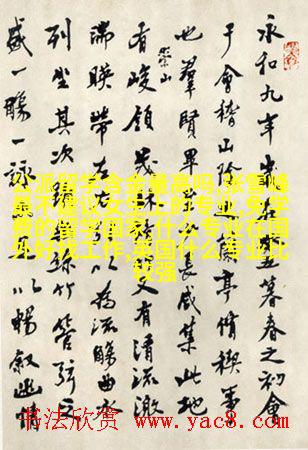 永和九年暮春之初會
于會稽山陰亭脩禊事
也羣賢畢咸集此地
有崇山峻領茂又有清流激
湍暎帶左右以為流觴曲水
列坐其次竹管弦之
盛一觴一詠以暢敘幽情
公派留学含金量高吗,张雪峰
最不建议女生上的专业,免学
费的留学国家,什么专业在国
外好找工作,英国什么专业比
较强
书法欣赏 www.yac8.com